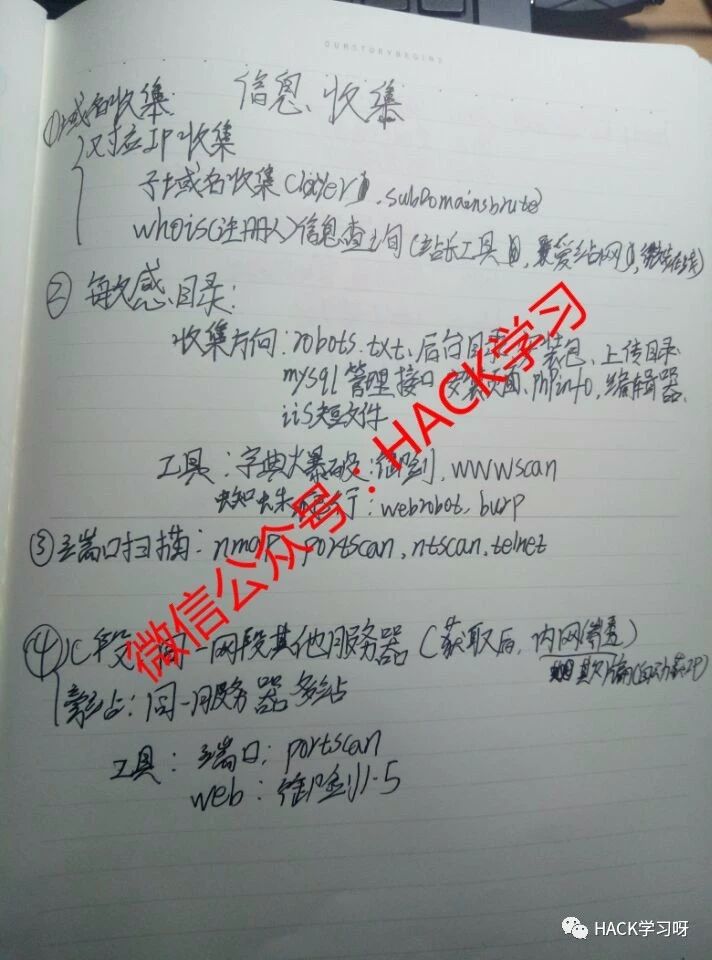 OURSTORYBEGINS
信息收集
①域名收集
对应IP收集
子域名收集(layer、subDomainsbrute)
whois(注册人)信息查询(站长工具、爱站网、
②敏感目录:
收集方向:robots.txt、后台目录、安装包、上传目录、
mysql管理接口、安装页面、phpinfo、编辑器、
iis短文件
工具:字典爆破:御剑、wwwscan
蜘蛛爬行:webrobot、burp
③端口扫描:nmap、portscan、ntscan、telnet
④C段:同一网段其他服务器(获取后,内网渗透)
欺骗
旁站:同一服务器多站
工具:端口:portscan
web:御剑1.5
微信公众号:HACK学习
HACK学习呀